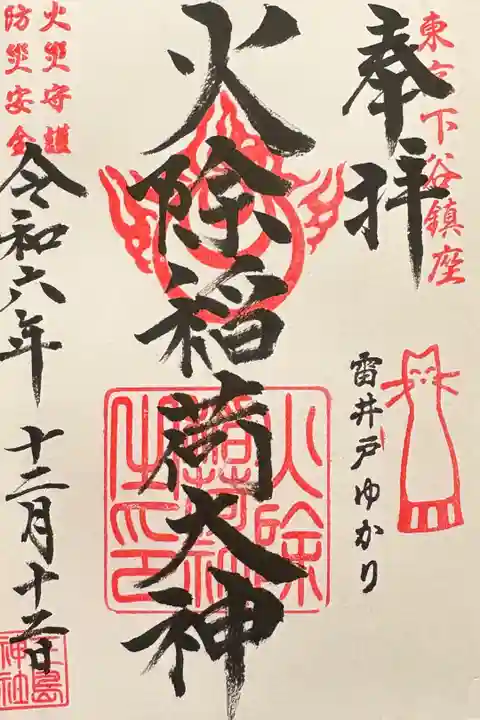 東京下谷鎮座
奉拝
雷井戸ゆかり
火除稲荷大神
火除稲荷神社之印
火災守護
防災安全
令和六年 十二月十二日
三島神社